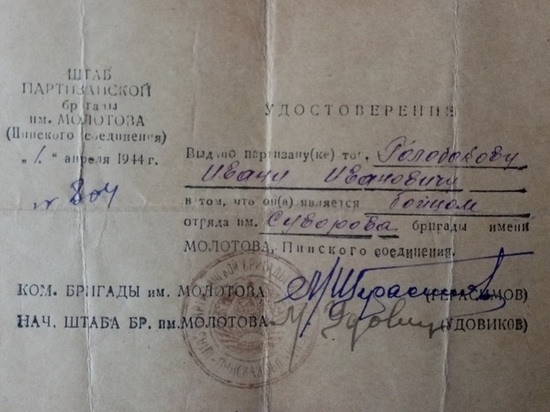 ШТАБ
ПАРТИЗАНСКОЙ
бригады
им. МОЛОТОВА
(Пинского соединения)
„1“ апреля 1944 г.
№ 804
УДОСТОВЕРЕНИЕ
Выдано партизану(ке) тов. Голобокову
Ивану Ивановичу
в том, что он(а) является бойцом
отряда им. Суворова бригады имени
МОЛОТОВА, Пинского соединения.
КОМ. БРИГАДЫ им. МОЛОТОВА (ГЕРАСИМОВ)
НАЧ. ШТАБА БР. им. МОЛОТОВА (УДОВИКОВ)